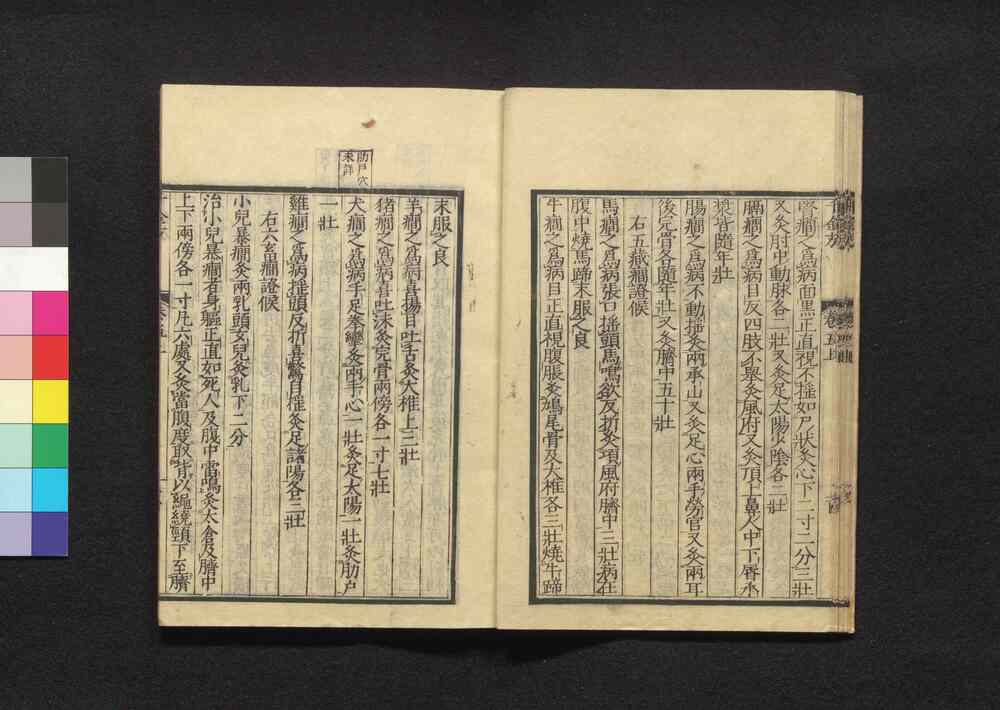 腎癇之爲病面黒正直視不揺如尸狀灸心下二寸二分三壯
又灸肘中動脉各二壯又灸足太陽少陰各二壯
膈癇之爲病目反四肢不擧灸風府又灸頂上鼻人中下脣承
漿皆隨年壯
腸癇之爲病不動揺灸兩承山又灸足心兩手勞宮又灸兩耳
後完骨各隨年壯又灸臍中五十壯
右五藏癇證候
馬癇之爲病張口搖頭馬鳴欲反折灸項風府臍中三壯病在
腹中燒馬蹄末服之良
牛癇之爲病目正直視腹脹灸鳩尾骨及大椎各三壯燒牛蹄
末服之良
羊癇之爲病喜揚目吐舌灸大椎上三壯
猪癇之爲病喜吐沫灸完骨兩傍各一寸七壯
犬癇之爲病手足拳攣灸兩手心一壯灸足太陽一壯灸肋戸
一壯
肋戸穴
未詳
雞癇之爲病搖頭反折喜驚自搖灸足諸陽各三壯
右六畜癇證候
小兒暴癇灸兩乳頭女兒灸乳下二分
治小兒暴癇者身軀正直如死人及腹中雷鳴灸太倉及臍中
上下兩傍各一寸凡六處又灸當腹度取背以繩繞頸下至臍